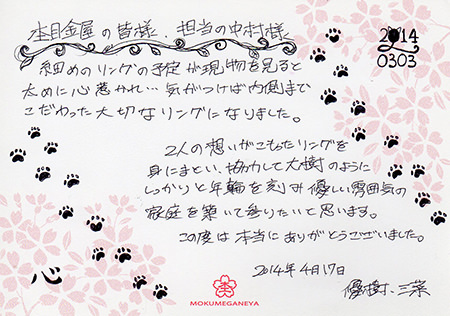 杢目金屋の皆様、担当の中村様
2014
0303
細めのリングの予定が現物を見ると
太めに心惹かれ… 気がつけば内側まで
こだわった大切なリングになりました。
2人の想いがこもったリングを
身にまとい、協力して大樹のように
しっかりと年輪を刻み優しい雰囲気の
家庭を築いて参りたいと思います。
この度は本当にありがとうございました。
2014年4月17日
優樹、三菜
心
杢
MOKUMEGANEYA